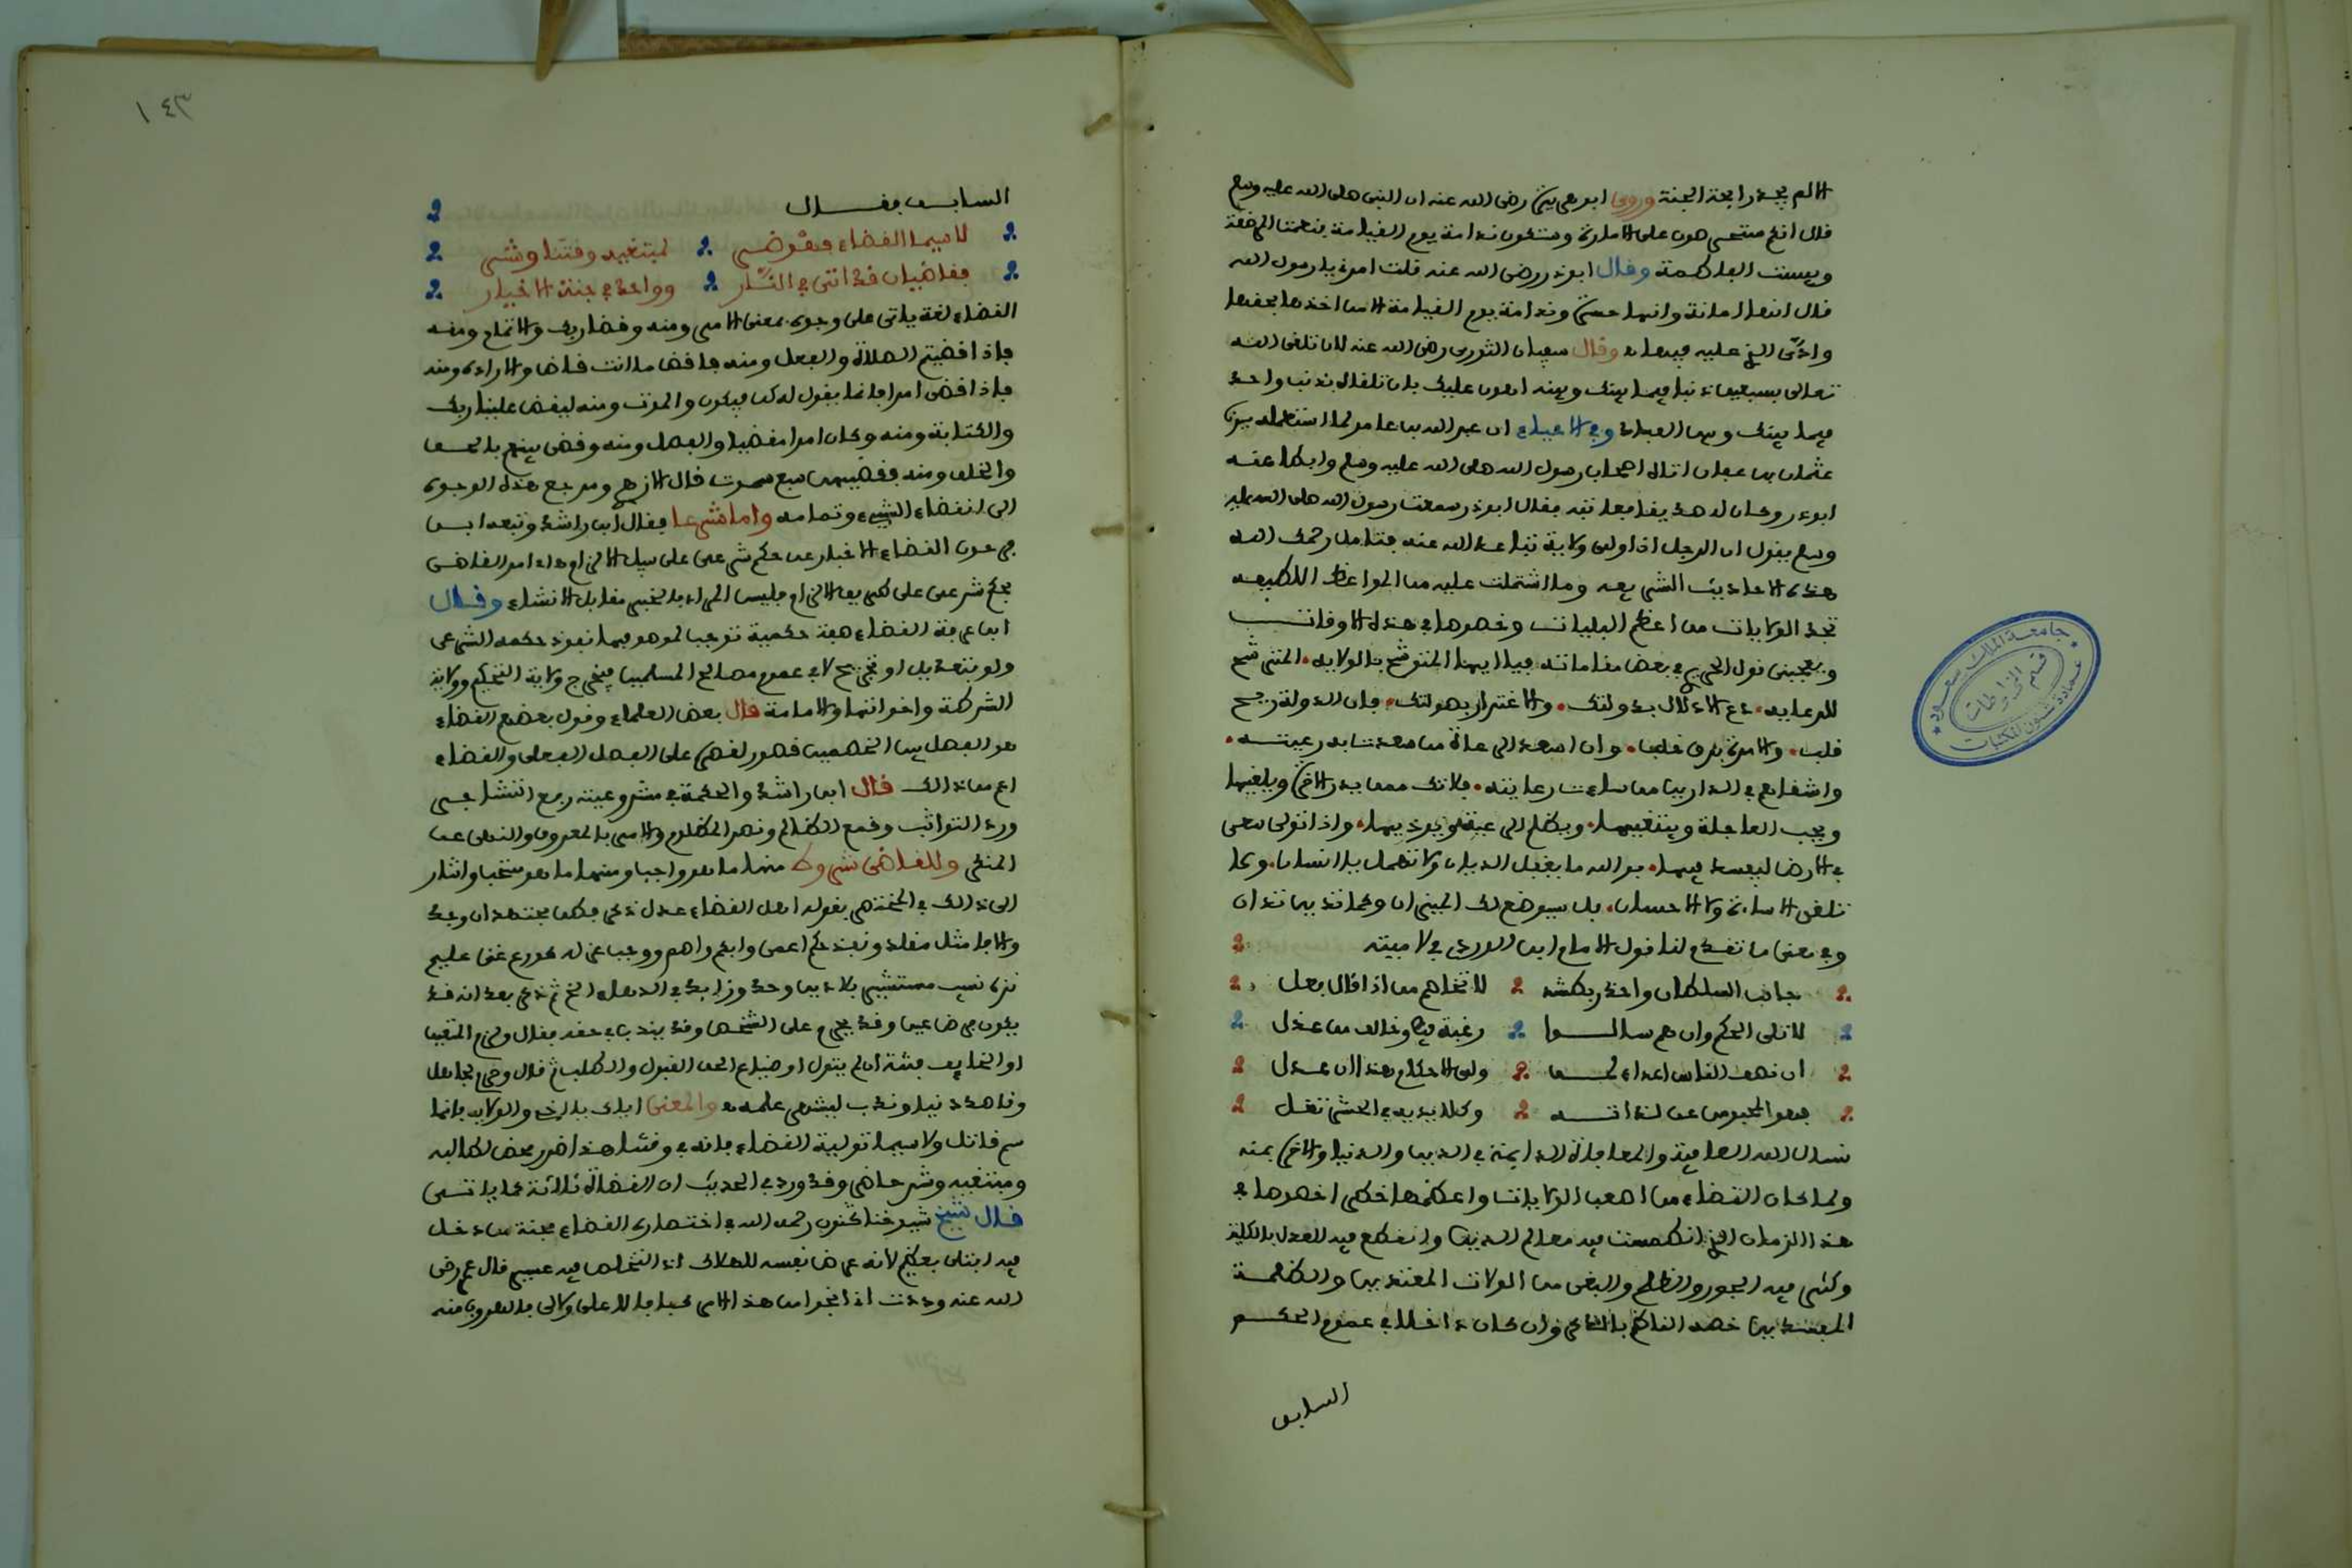 الا لم يجد رائحة الجنة وروى ابو هريرة رضي الله عنه ان النبي صلى الله عليه وسلم
قال انكم ستحرصون على الامارة وستكون ندامة يوم القيامة فنعمت المرضعة
وبيست الفاطمة وقال ابو ذر رضي الله عنه قلت امرني يا رسول الله
فقال انها امانة وانها حسرة وندامة يوم القيامة الا من اخذها بحقها
وادى الذي عليه فيها وقال سفيان الثوري رضي الله عنه لان تلقى الله
تعالى بسبعين ذنبا فيما بينك وبينه اهون عليك بان تلقاه بذنب واحد
فيما بينك وبين العباد وفي الاحياء ان عبد الله بن عامر لما استعمله سيدنا
عثمان بن عفان اتاه اصحاب رسول الله صلى الله عليه وسلم وابطا عنه
ابو ذر وكان له صديقا فعاتبه فقال ابو ذر سمعت رسول الله صلى الله عليه
وسلم يقول ان الرجل اذا ولي ولاية تباعد الله عنه فتامل رحمك الله
هذه الاحاديث الشريفه وما اشتملت عليه من المواعظ اللطيفه
تجد الولايات من اعظم البليات وخصوصا في هذه الاوقات
ويعجبني قول الحريري في بعض مقاماته فيا ايها المتوشح بالولايه المترشح
للرعايه دع الادلال بدولتك والاغترار بصولتك فان الدولة ريح
قلب والامرة برق خلب وان اسعد الرعاة من سعدت به رعيته
واشقاهم في الدارين من ساءت رعايته فلا تك ممن يذر الاخرة ويلغيها
ويحب العاجلة ويبتغيها ويظلم الرعية ويوذيها واذا تولى سعى
في الارض ليفسد فيها فوالله ما يغفل الديان ولا تهمل يا انسان ولا
تلغى الاساءة ولا الاحسان بل سيوضع لك الميزان وكما تدين تدان
وفي معنى ما تقدم لنا قول الامام ابن الوردي في لاميته
جانب السلطان واحذر بطشه لا تخاصم من اذا قال فعل
لا تلي الحكم وان هم سالوا رغبة فيك وخالف من عذل
ان نصف الناس اعداء لمن ولي الاحكام هذا ان عدل
فهو المحبوس عن لذاته وكلا يديه في الحشر تغل
نسال الله العافية والمعافاة الدائمة في الدين والدنيا والاخرة بمنه
ولما كان القضاء من اصعب الولايات واعظمها خطرا خصوصا في
هذا الزمان الذي انطمست فيه معالم الدين وانقطع فيه العدل بالكلية
وكثر فيه الجور والظلم والبغي من الولات المعتدين والظلمة
المفسدين خصه الناظم بالذكر وان كان داخلا في عموم الحكم
السابق
١٤٣
السابق فقال
لا سيما القضاء فهو خسر لمبتغيه وقتنا وشر
فقاضيان قد اتى في النار وواحد في جنة الاخيار
القضاء لغة ياتي على وجوه بمعنى الامر ومنه وقضى ربك والاتمام ومنه
فاذا قضيتم الصلاة والفعل ومنه فاقض ما انت قاض والارادة ومنه
فاذا قضى امرا فانما يقول له كن فيكون والموت ومنه ليقض علينا ربك
والكتابة ومنه وكان امرا مقضيا والفصل ومنه وقضى بينهم بالحق
والخلق ومنه فقضيهن سبع سموت قال الازهري ومرجع هذه الوجوه
الى انقضاء الشيء وتمامه واما شرعا فقال ابن راشد وتبعه ابن
فرحون القضاء الاخبار عن حكم شرعي على سبيل الالزام
بحكم شرعي على طريق الالزام فليس المراد بالخبر مقابل الانشاء وقال
ابن عرفة القضاء صفة حكمية توجب لموصوفها نفوذ حكمه الشرعي
ولو بتعديل او تجريح لا في عموم مصالح المسلمين فيخرج ولاية التحكيم وولاية
الشرطة واخواتها والامامة قال بعض العلماء وقول بعضهم القضاء
هو الفصل بين الخصمين قصور لقصره على الفصل الفعلي والقضاء
اعم من ذلك قال ابن راشد والحكمة في مشروعيته رفع التشاجر
ورد التواثب وقمع الظالم ونصر المظلوم والامر بالمعروف والنهي عن
المنكر وللقاضي شروط منها ما هو واجب ومنها ما هو مستحب واشار
الى ذلك في المختصر بقوله اهل القضاء عدل ذكر فطن مجتهد ان وجد
والا فامثل مقلد ونفذ حكم اعمى وابكم واصم ووجب عزله كورع غني حليم
نزه نسيب مستشير بلا دين وحد وزايد في الدهاء ثم ذكر بعد انه قد
يكون فرض عين وقد يحرم على الشخص وقد يندب في حقه فقال ولزم المتعين
او الخايف فتنة ان لم يتول او ضياع الحق القبول والطلب ثم قال وحرم لجاهل
وقاصد دنيا وندب ليشهر علمه والمعنى اياك يا اخي والولاية فانها
سم قاتل ولا سيما تولية القضاء فانه في وقتنا هذا ضرر محض لطالبه
ومبتغيه وشر حاضر وقد ورد في الحديث ان القضاة ثلاثة كما ياتي
قال شيخ شيوخنا كنون رحمه الله في اختصاره القضاء محنة من دخل
فيه ابتلي بعظيم لانه عرض نفسه للهلاك اذ التخلص فيه عسير قال عمر رضي
الله عنه وددت ان انجو من هذا الامر كفافا لا علي ولا لي فالهروب منه
جامعة الملك سعود
عمادة شؤون المكتبات
قسم المخطوطات